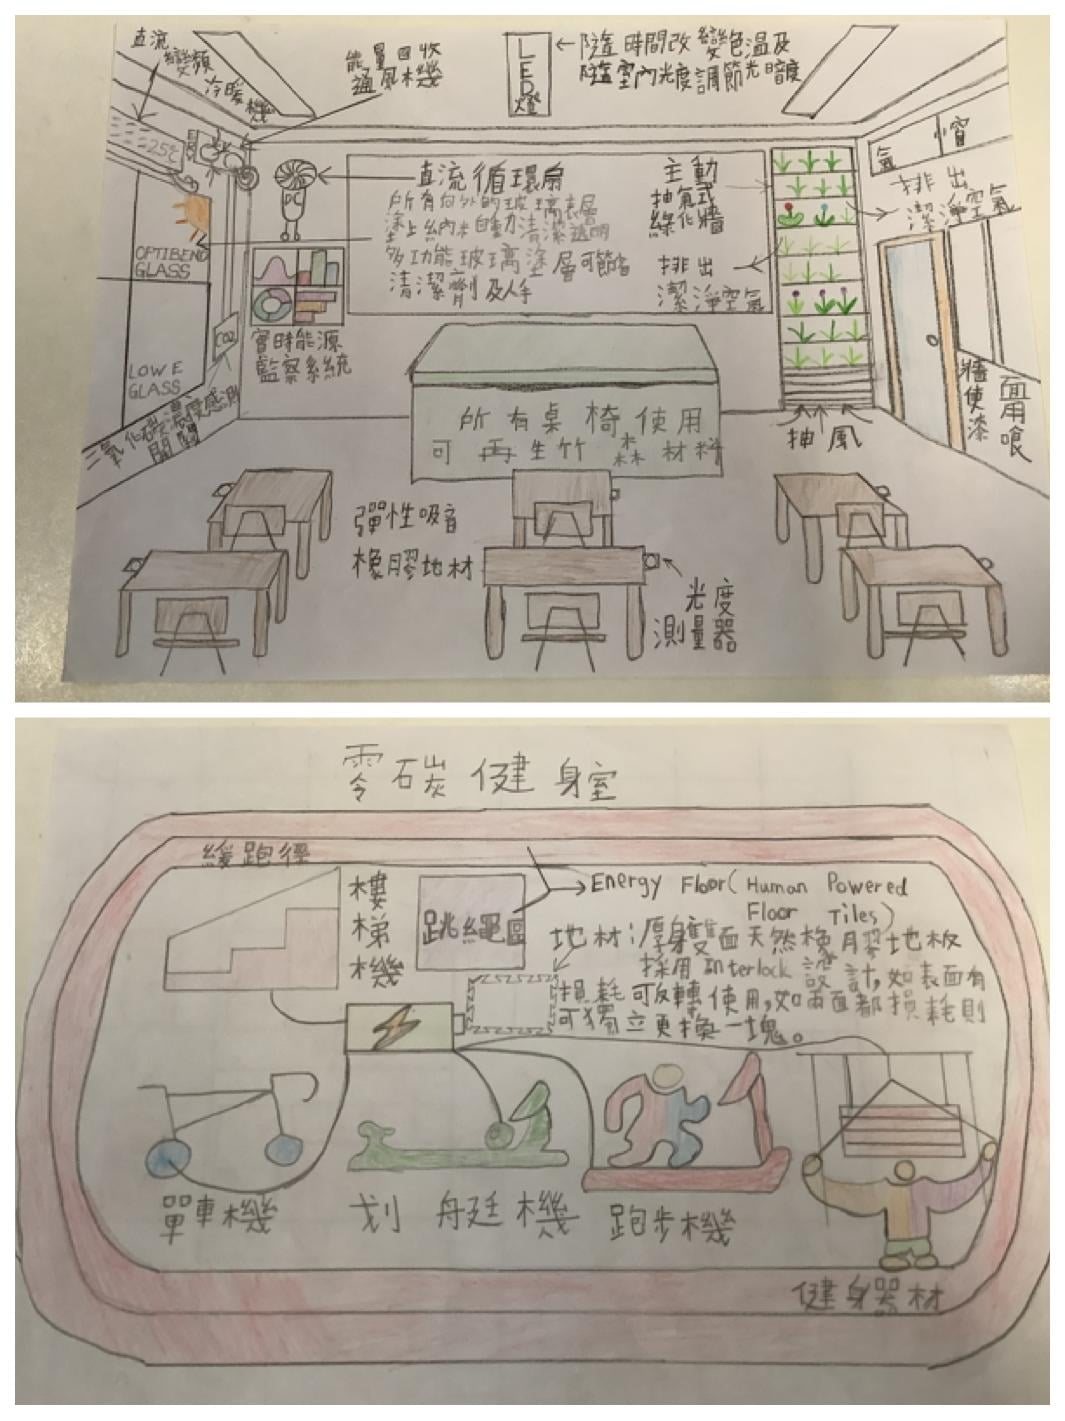 直流
變頻
冷暖機
能量回收
通風機
LED燈
隨時間改變色溫及
隨室內光度調節光暗度
25℃
氣窗
排出
潔淨空氣
DC
直流循環扇
所有向外的玻璃表層
塗上納米自動清潔透明
多功能玻璃塗層可節省
清潔劑及人手
主動
抽氣式
綠化牆
排出
潔淨空氣
OPTIBEND
GLASS
LOW E
GLASS
CO2
二氧化碳濃度感測
開關
實時能源
監察系統
所有桌椅使用
可再生竹森材料
抽風
牆面
使用
漆
彈性吸音
橡膠地材
光度
測量器
零碳健身室
緩跑徑
樓梯機
跳繩區
Energy Floor(Human Powered
Floor Tiles)
地材:厚身雙面天然橡膠地板
採用Interlock設計,如表面有
損耗可反轉使用,如兩面都損耗則
可獨立更換一塊。
單車機
划舟廷機
跑步機
健身器材